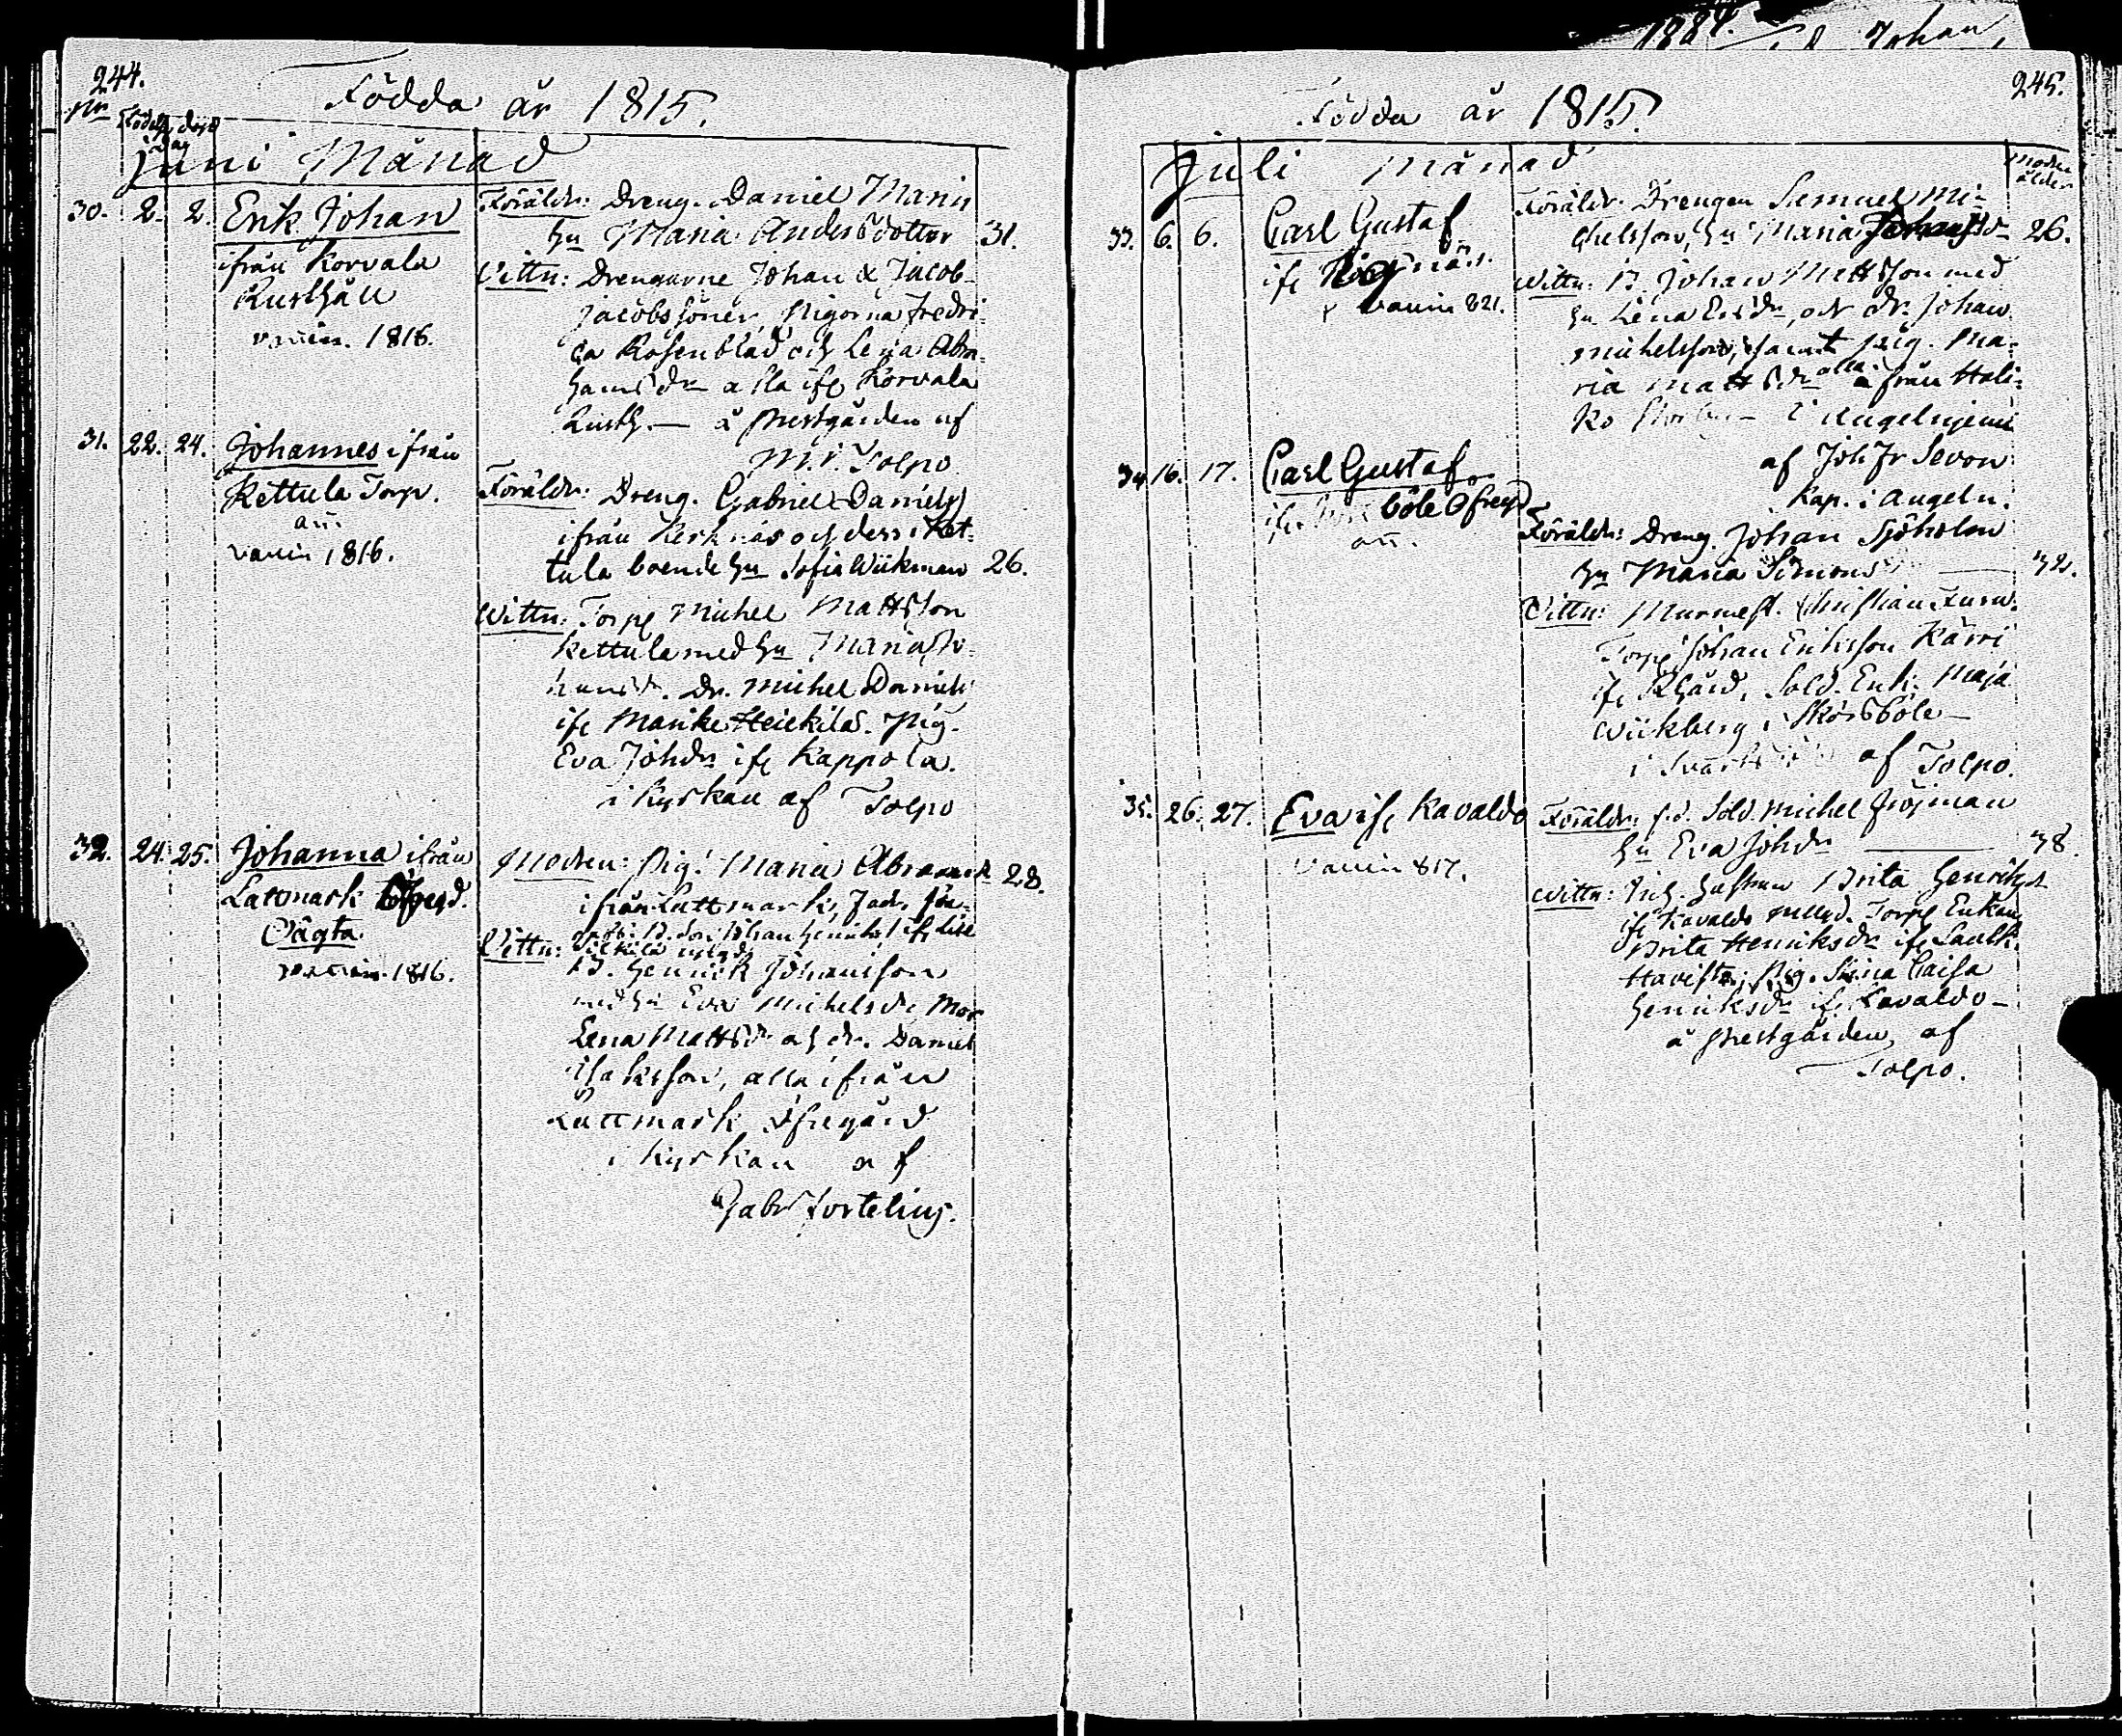 244.
Födda år 1815.
Nr
Juni Månad
30. 2. 2. Erik Johan
ifrån Korvala
Rusthåll
vaccin. 1816.
Föräldr: Dreng. Daniel
hu Maria Andersdotter 31.
Vittn: Drengarne Johan & Jacob
Jacobssöner, Pigorna Fredri-
ca Rosenblad och Lena Abra-
hamsdr alla ifr Korvala
Rusth. — å Prestgården af
Tolpo
31. 22. 24. Johannes ifrån
Kettula Torp.
ann.
vaccin 1816.
Föräldr: Dreng. Gabriel Daniels
ifrån och dess i Ket-
tula boende hu Sofia Wikman 26.
Wittn: Torp Michel Mattsson
Kettula med hu Maria Jo-
hansdr. Dr. Michel Daniels
ifr Heickilas. Pig.
Eva Johdr ifr Kappola.
i Kyrkan af Tolpo
32. 24. 25. Johanna ifrån
Lattmark Öfregd.
Oägta
vaccin. 1816.
Modren: Pig. Maria Abramsdr 28.
ifrån Lattmark, fadr.
B. Son Johan
Vittn:
B. Henrick Johansson
med hu Eva Michelsdr Mor
Lena Mattsdr och dr. Daniel
Isaksson, alla ifrån
Lattmark Öfregård
i Kyrkan af
Gabr Fortelius.
1884. Johan
245.
Födda år 1815.
Juli Månad
Modr ålder
33. 6. 6. Carl Gustaf
ifr
vaccin 821.
Föräldr: Drengen Samuel Mi-
chelsson, hu Maria 26.
Wittn: B. Johan Mattsson med
hu Lena Ersdr, och dr. Johan
Michelsson, samt pig. Ma-
ria Mattsdr alla ifrån Hali-
ko i Angelniemi
af Joh Fr Sevon
Kap. i Angeln.
34 16. 17. Carl Gustaf
ifr böle Öfregd
ann.
Föräldr: Dreng. Johan Sjöholm
hu Maria Simons — 32.
Vittn: Murmest. Christian
Torp Johan Eriksson Kärri
ifr Sold. Enk. Maja
Wickberg i Skörsböle
i af Tolpo.
35. 26. 27. Eva ifr Kavaldo
vaccin 817.
Föräldr: f.d. Sold. Michel Fröjman
hu Eva Johdr — 38.
Wittn: Brita Henriksdr
ifr Kavaldo Torp Enkan
Brita Henriksdr ifr
Pig. Caisa
Henriksdr ifr Kavaldo —
å Prestgården, af
Tolpo.